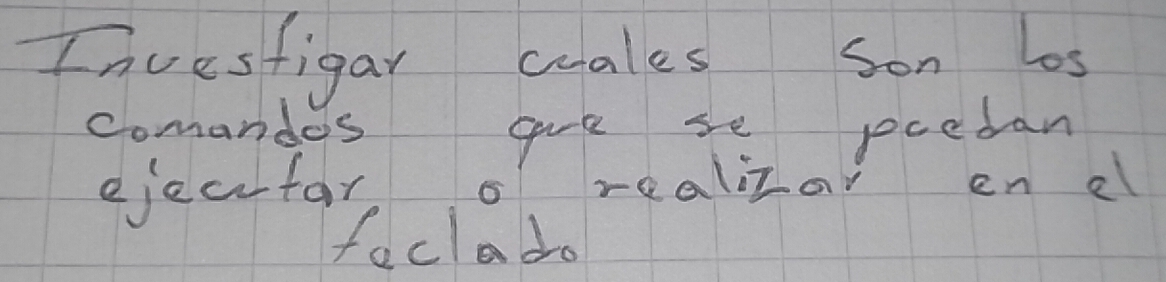 Investigar cuales son los
comandos que se puedan
ejecutar o realizar en el
teclado